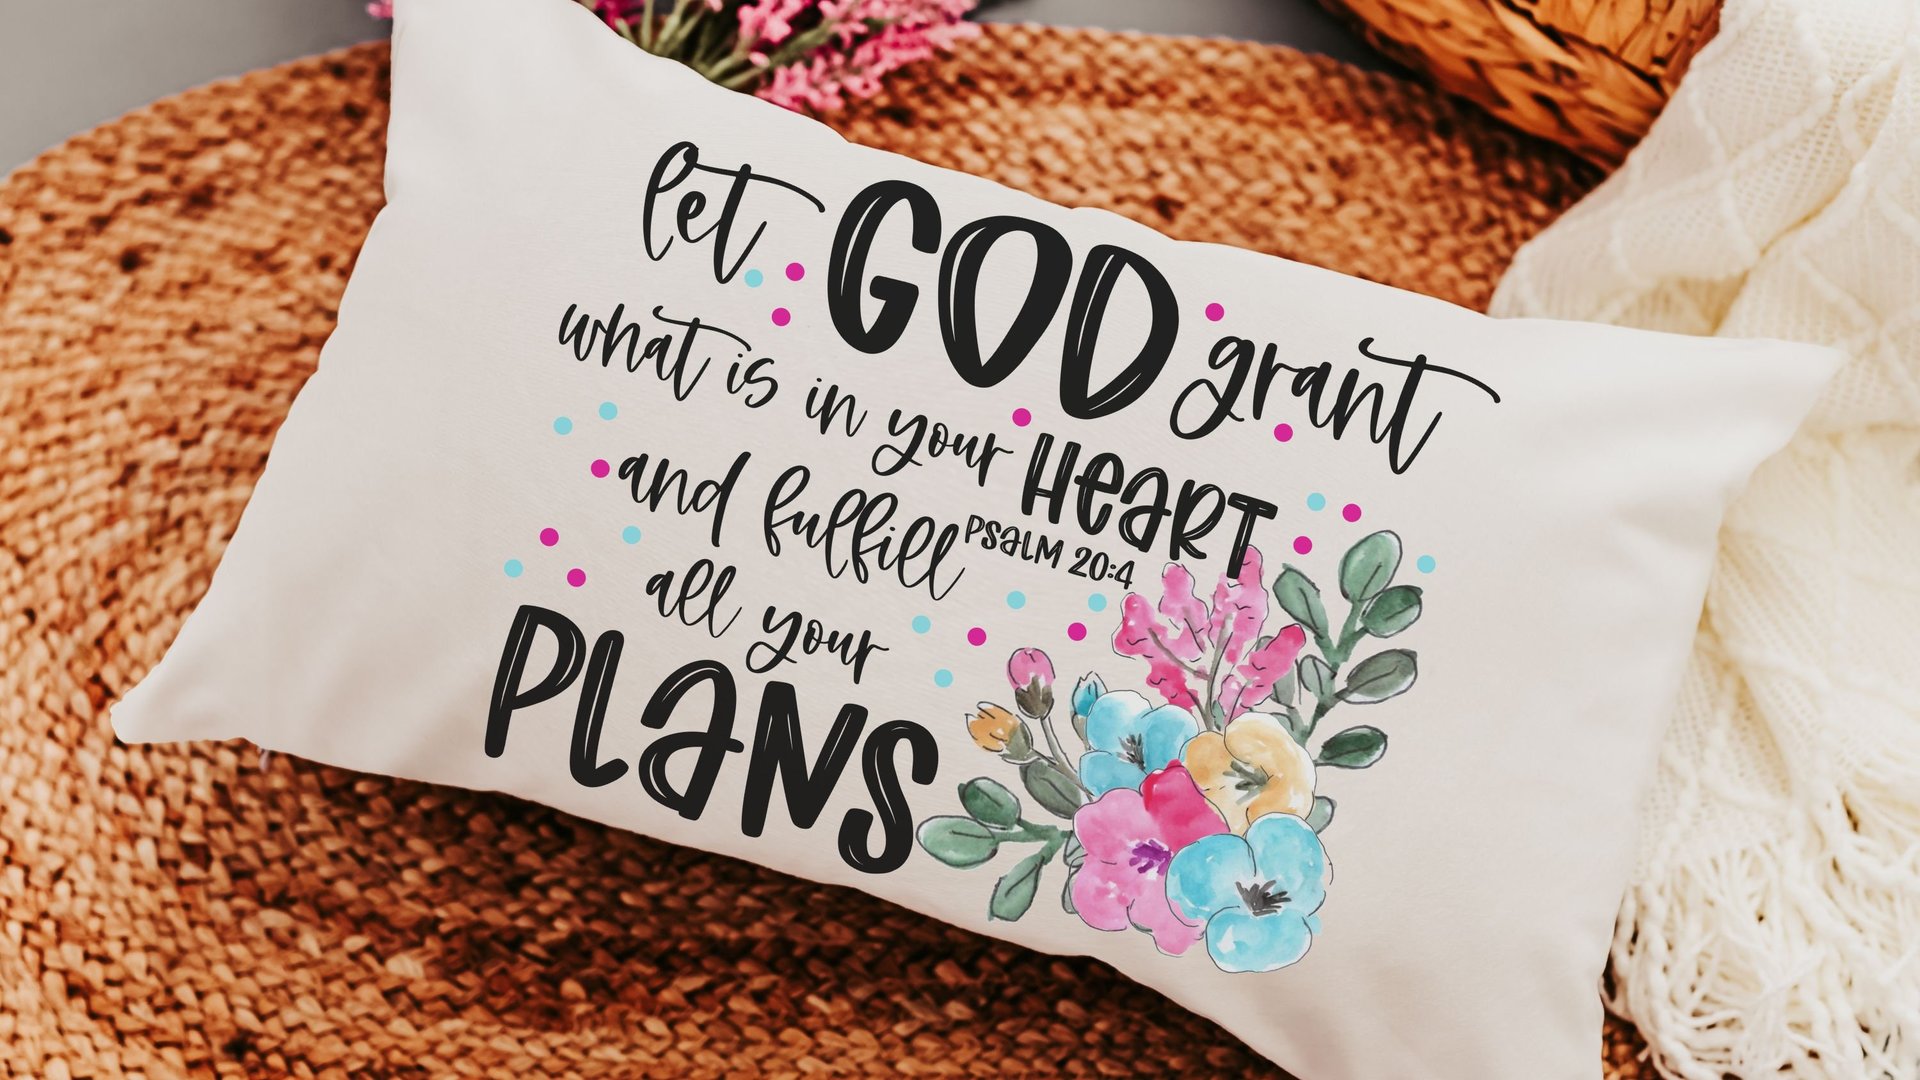 let GOD grant
what is in your HeaRT
and fulfill PSaLM 20:4
all your
PLaNS